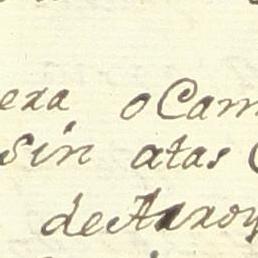 eza o Cam
sin atas
de Arroy